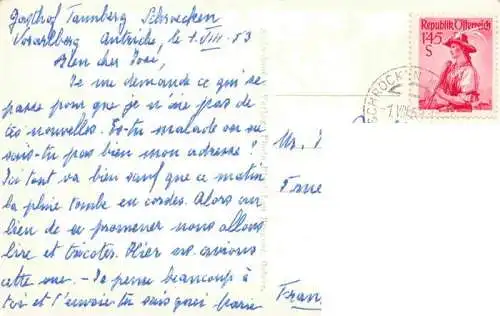 Gasthof Tannberg Schroecken
Vorarlberg Autriche, le 1.VIII.53
Mon cher José,
Je me demande ce qui se
passe pour que je n'aie pas de
tes nouvelles. Es-tu malade ou ne
sais-tu pas bien mon adresse?
Ici tout va bien sauf que ce matin
la pluie tombe en cordes. Alors au
lieu de se promener nous allons
lire et tricoter. Hier nous avions
cette vue. - Je pense beaucoup à
toi et t'envoie tu sais quoi Marie
Republik Österreich
1.45
S
SCHRÖCKEN
Mr.
Fran